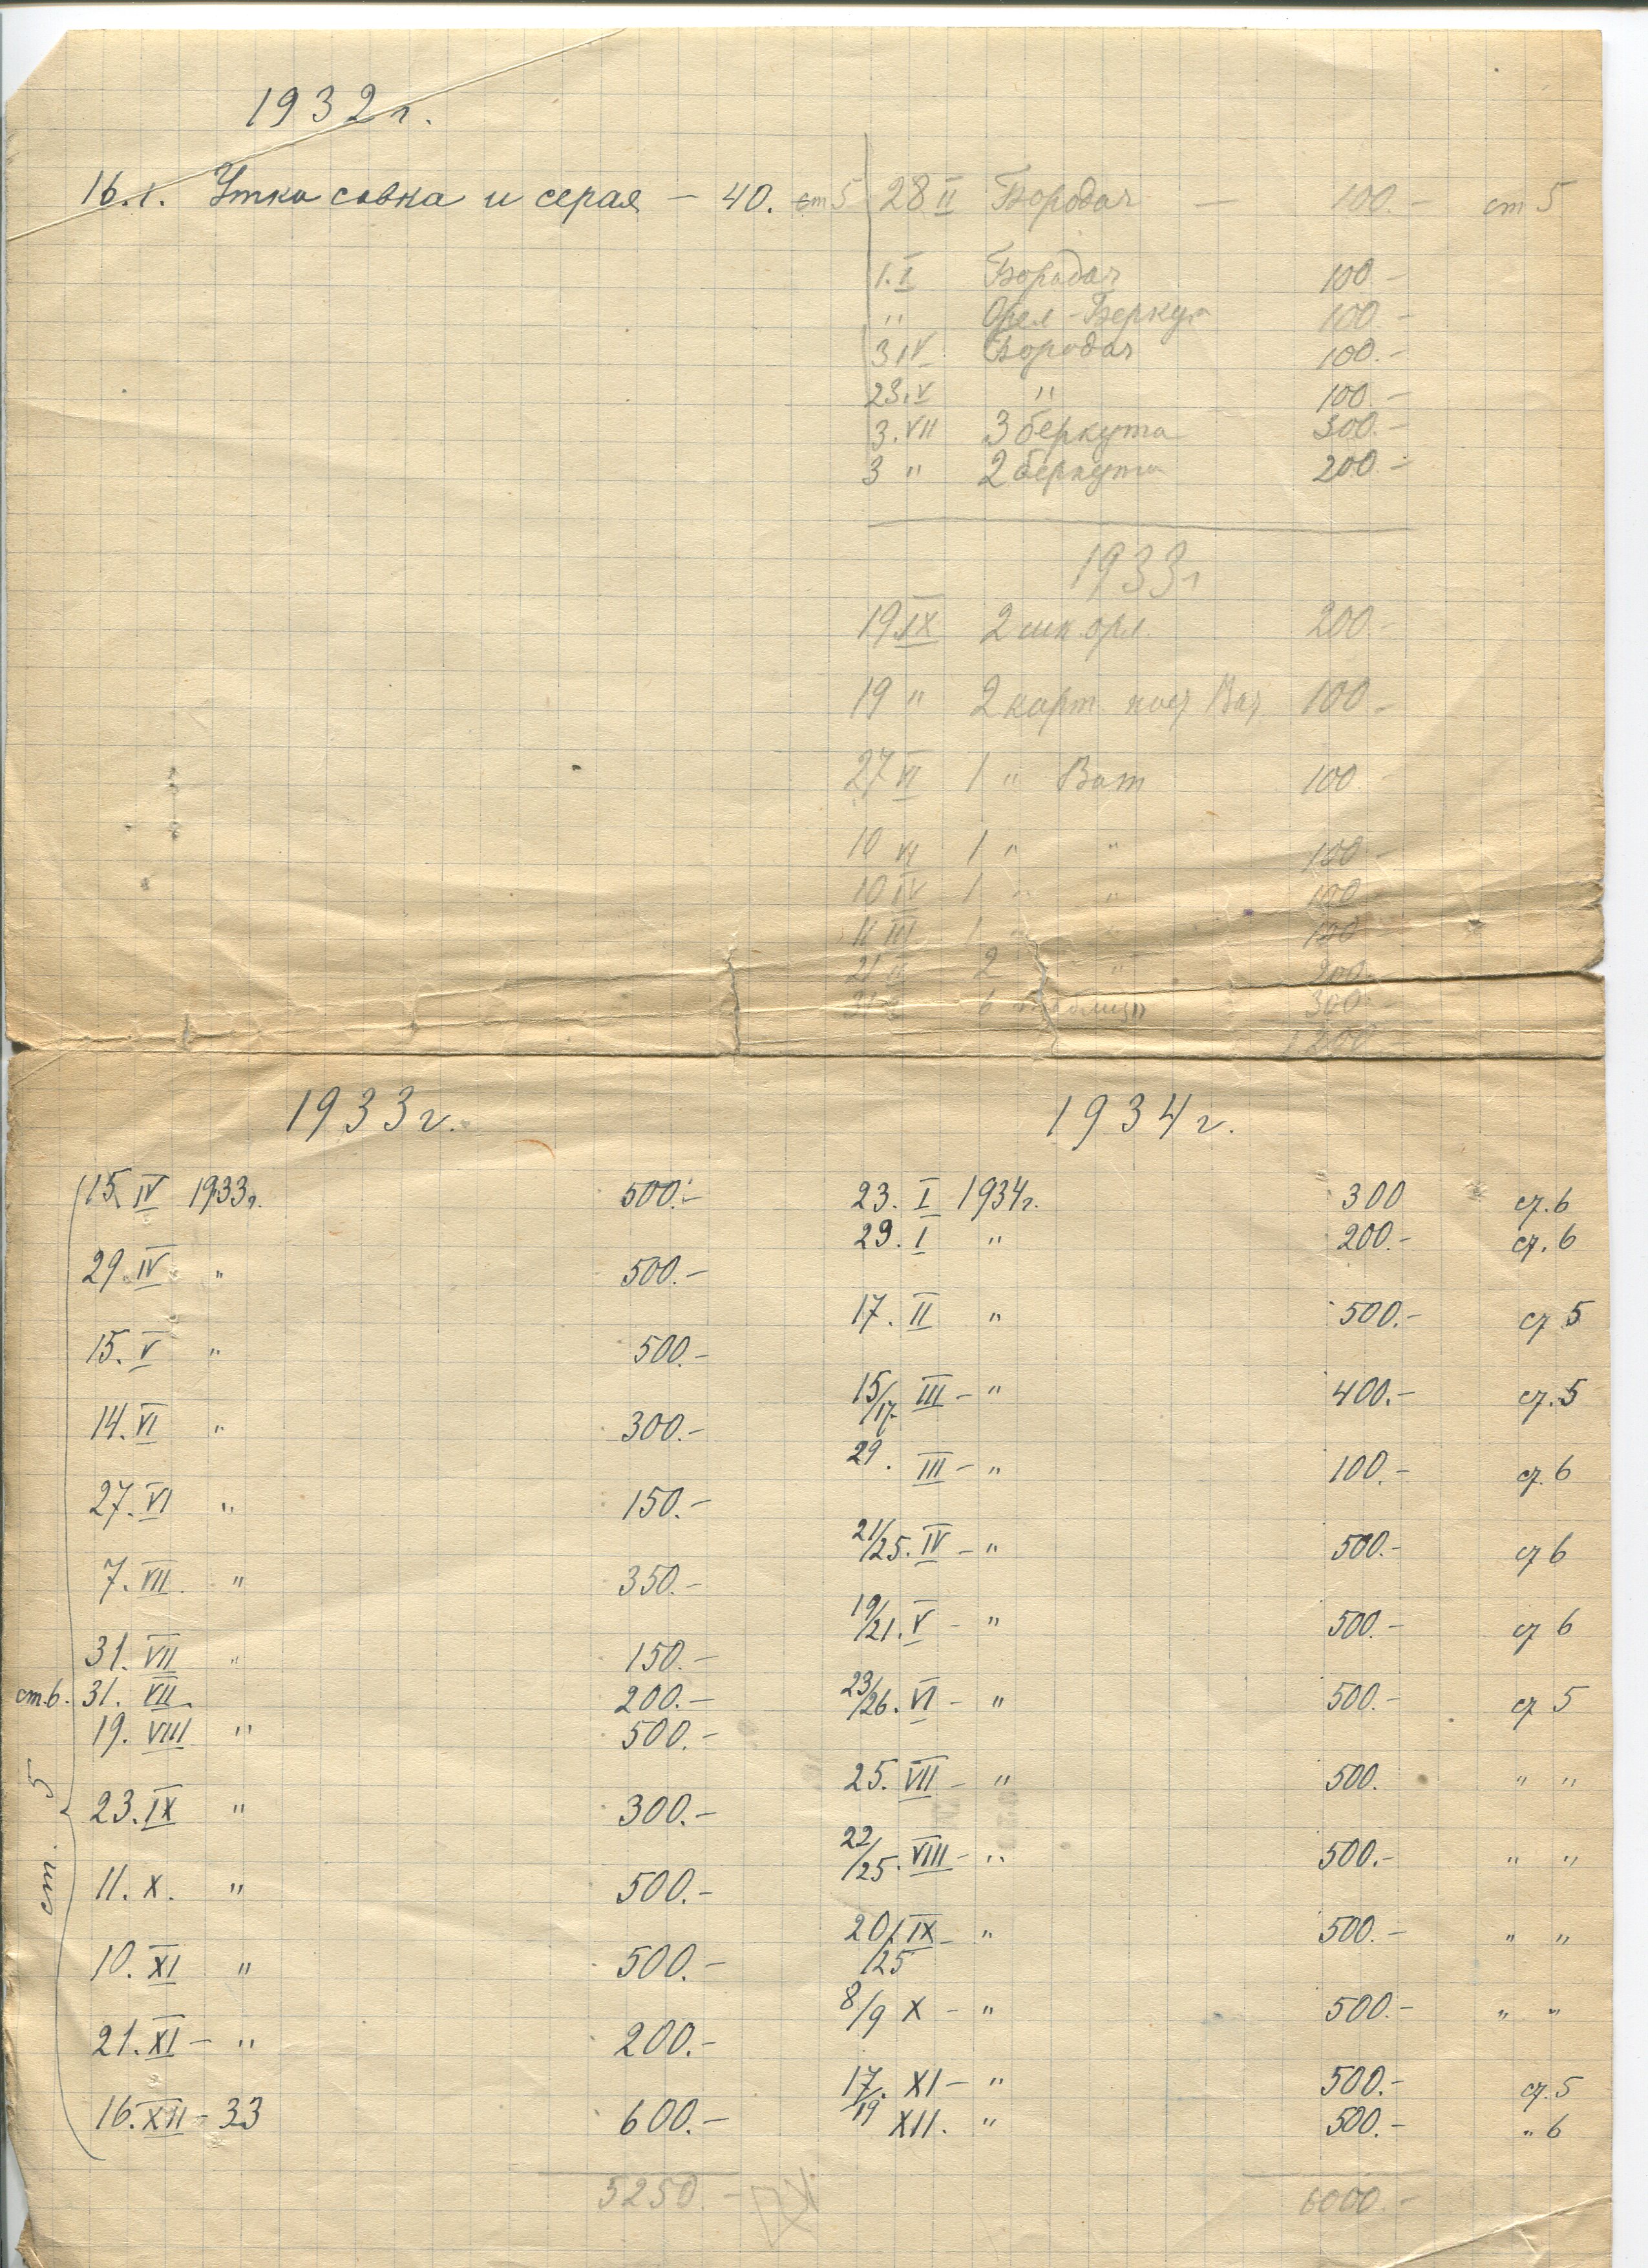 1932г.
16.I. Утка савка и серая – 40. ст 5
28 II Бородач — 100.– ст 5
1.I Бородач 100.–
" Орел-Беркут 100.–
3 IV Бородач 100.–
23.V " 100.–
3.VII 3 беркута 300.–
3 " 2 беркута 200.–
1933г
19 IX 2 орл. 200.–
19 " 2 карт 100.–
27 VI 1 " Ват 100.–
10 VI 1 " " 100.–
10 IV 1 " " 100.–
11 III 1 " " 100
21 II 2 " 200.–
6 таблиц 300.–
1200.–
1933г.
15 IV 1933г. 500.–
29.IV " 500.–
15.V " 500.–
14.VI " 300.–
27.VI " 150.–
7.VII. " 350.–
31.VII " 150.–
ст.6. 31. VII 200.–
19. VIII " 500.–
23.IX " 300.–
ст. 5
11. X. " 500.–
10. XI " 500.–
21.XI – " 200.–
16.XII – 33 600.–
5250.–
1934г.
23. I 1934г. 300 ст.6
29. I " 200.– ст.6
17. II " 500.– ст 5
15/17 III – " 400.– ст.5
29. III – " 100.– ст.6
21/25. IV – " 500.– ст 6
19/21. V – " 500.– ст 6
23/26. VI – " 500.– ст 5
25. VII – " 500. " "
22/25. VIII – " 500.– " "
20/25 IX – " 500.– " "
8/9 X – " 500.– " "
17/19. XI – " 500.– ст.5
XII. " 500.– " 6
6000.–